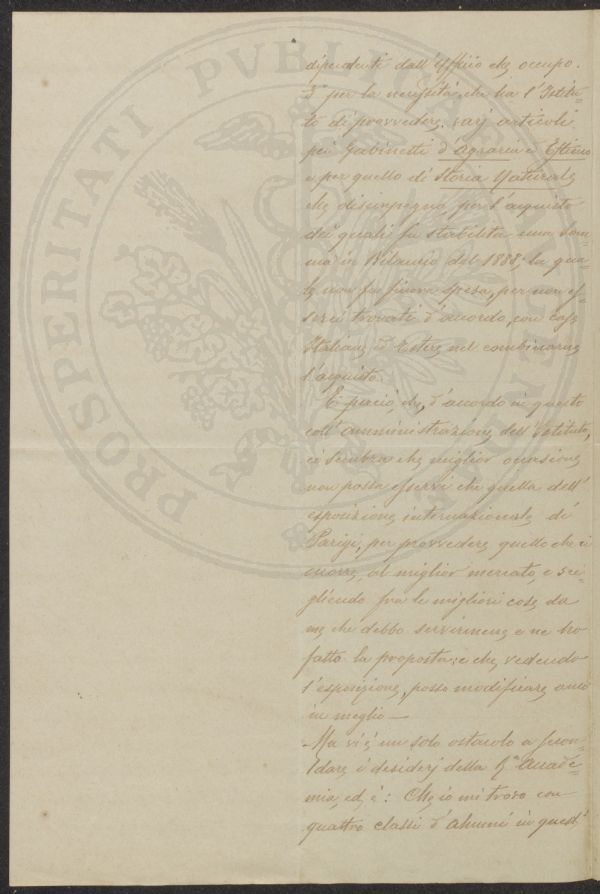 PROSPERITATI PVBLICAE AVGENDAE
dipendenti dall'Ufficio che occupo.
3° per la necessità che ha l'Istitu-
to di provvedere varj articoli
pei Gabinetti d'Agraria e Estimo
e per quello di Storia Naturale
che disimpegno, per l'acquisto
dei quali fu stabilita una Som-
ma in Bilancio del 1888, la qua-
le non fu finora spesa, per non es-
serci trovati d'accordo, con case
Italiane ed Estere nel combinarne
l'acquisto.
È perciò che, d'accordo in questo
coll'amministrazione dell'istituto,
ci sembra che miglior occasione
non possa esservi che quella dell'
esposizione internazionale di
Parigi, per provvedere quello che ci
occorre, al miglior mercato, e sce-
gliendo fra le migliori cose da
me che debbo servirmene e ne ho
fatto la proposta: e che, vedendo
l'esposizione, posso modificare anco
in meglio —
Ma vi è un solo ostacolo a secon-
dare i desiderj della R.ª Accade-
mia, ed è: Che io mi trovo con
quattro classi d'alunni in quest'